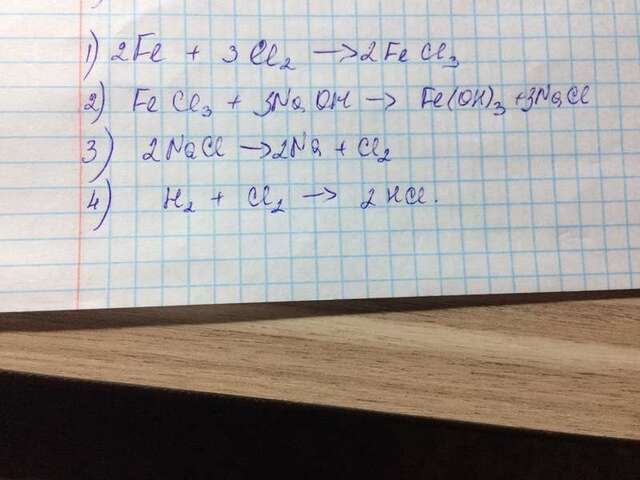 1) 2Fe + 3Cl₂ → 2FeCl₃
2) FeCl₃ + 3NaOH → Fe(OH)₃ + 3NaCl
3) 2NaCl → 2Na + Cl₂
4) H₂ + Cl₂ → 2HCl.